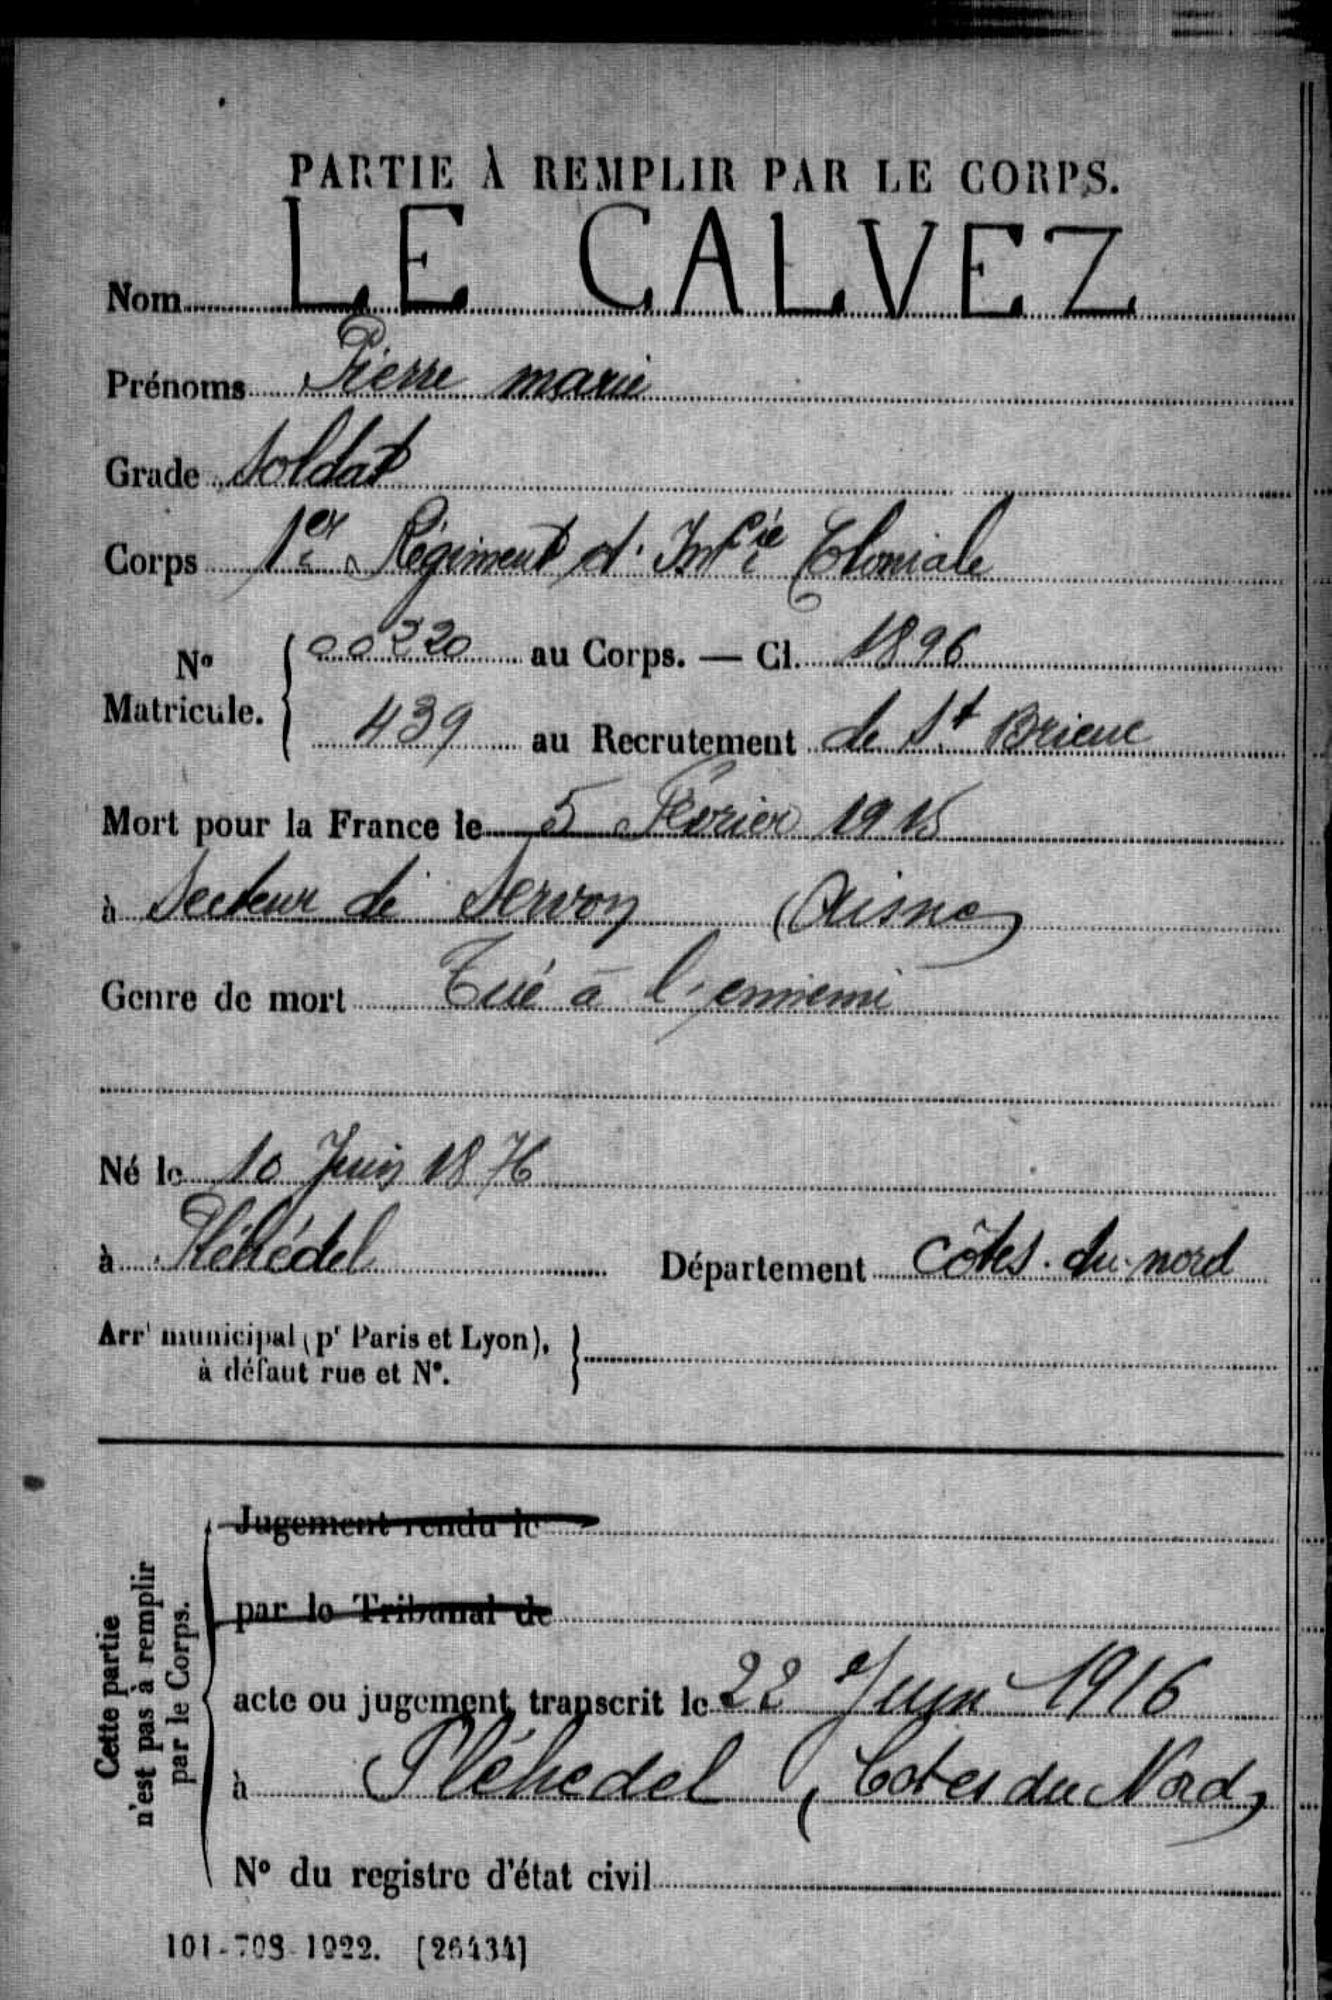 PARTIE À REMPLIR PAR LE CORPS.
Nom LE CALVEZ
Prénoms Pierre marie
Grade Soldat
Corps 1er Régiment d'Infie Coloniale
No Matricule. { 00220 au Corps. — Cl. 1896
439 au Recrutement de St Brieuc
Mort pour la France le 5 Février 1915
à Secteur de Servon (Aisne)
Genre de mort Tué à l'ennemi
Né le 10 Juin 1876
à Pléhédel Département Côtes. du. nord
Arrt municipal (pr Paris et Lyon), à défaut rue et N°. }
Cette partie n'est pas à remplir par le Corps.
Jugement rendu le
par le Tribunal de
acte ou jugement transcrit le 22 Juin 1916
à Pléhedel (Cotes du Nord)
N° du registre d'état civil
101-708-1922. [26434]